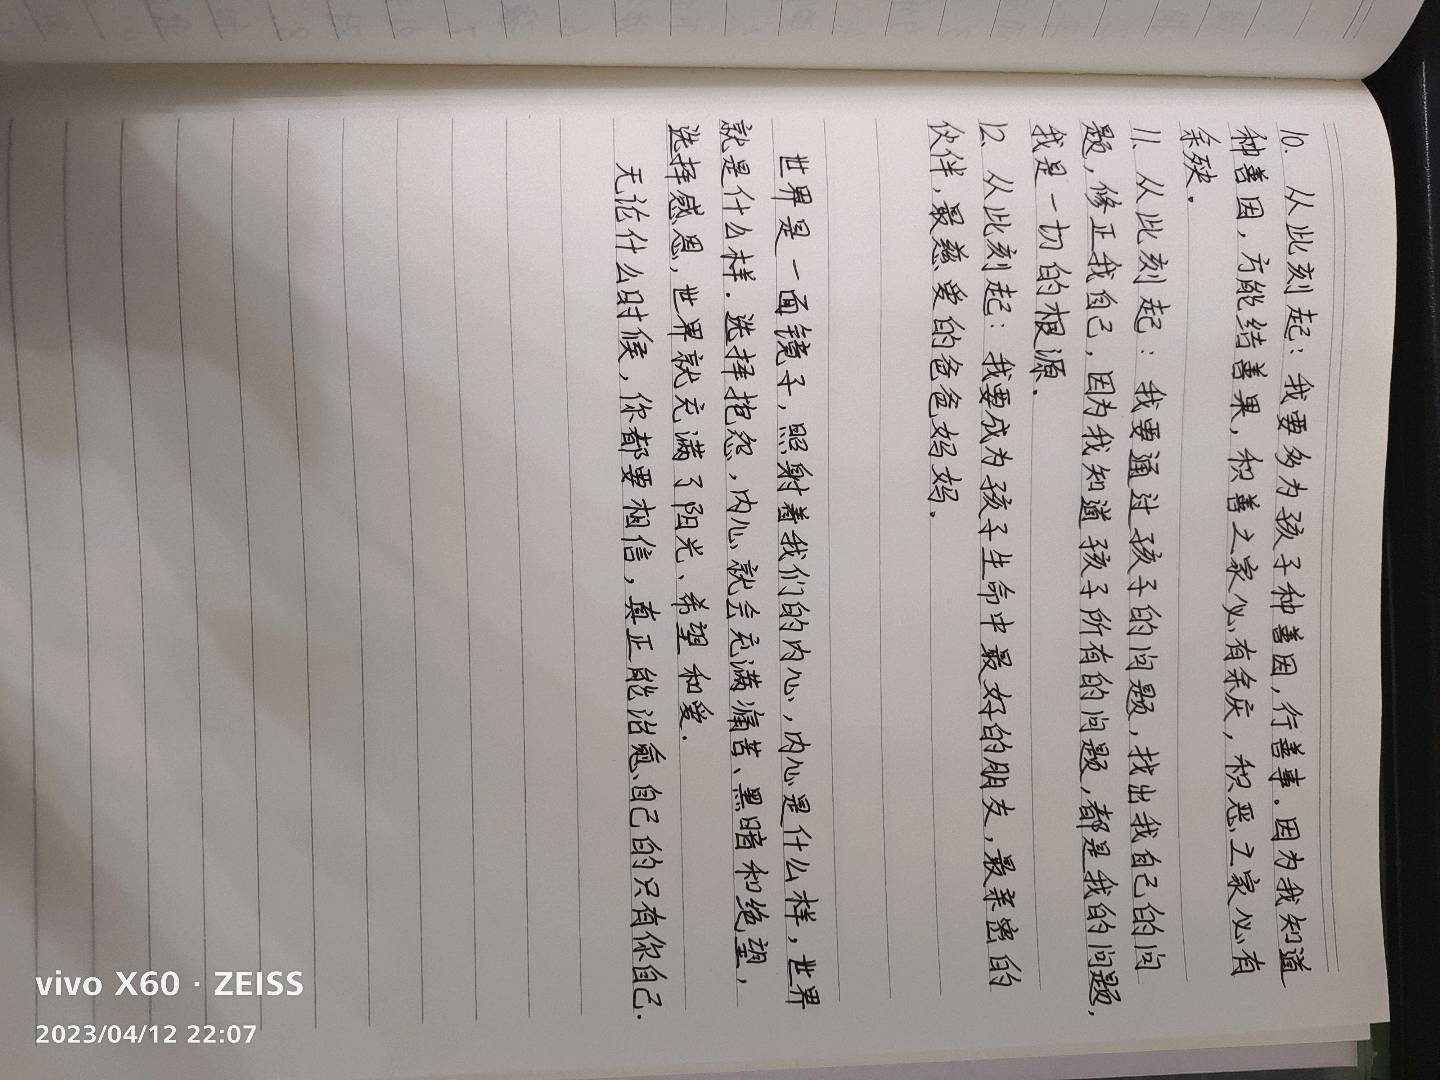 10. 从此刻起：我要多为孩子种善因，行善事．因为我知道
种善因，方能结善果，积善之家必有余庆，积恶之家必有
余殃．
11、从此刻起：我要通过孩子的问题，找出我自己的问
题，修正我自己，因为我知道孩子所有的问题，都是我的问题，
我是一切的根源．
12、从此刻起：我要成为孩子生命中最好的朋友，最亲密的
伙伴，最慈爱的爸爸妈妈。
世界是一面镜子，照射着我们的内心，内心是什么样，世界
就是什么样．选择抱怨，内心就会充满痛苦、黑暗和绝望，
选择感恩，世界就充满了阳光、希望和爱．
无论什么时候，你都要相信，真正能治愈自己的只有你自己．
vivo X60 · ZEISS
2023/04/12 22:07